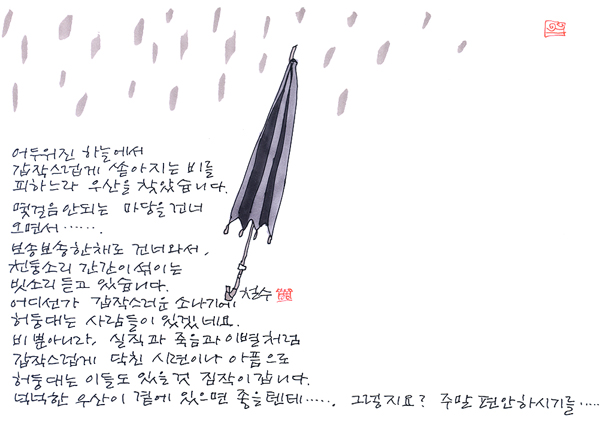 어두워진 하늘에서
갑작스럽게 쏟아지는 비를
피하느라 우산을 찾았습니다.
몇걸음안되는 마당을건너
오면서…….
보송보송한채로 건너와서,
천둥소리 간간이섞이는
빗소리 듣고 있습니다.
어디선가 갑작스러운 소나기에
허둥대는 사람들이 있겠네요.
비뿐아니라, 실직과 죽음과 이별처럼
갑작스럽게 닥친 시련이나 아픔으로
허둥대는 이들도 있을것 짐작이갑니다.
넉넉한 우산이 곁에 있으면 좋을텐데……. 그렇지요? 주말 편안하시기를……
철수